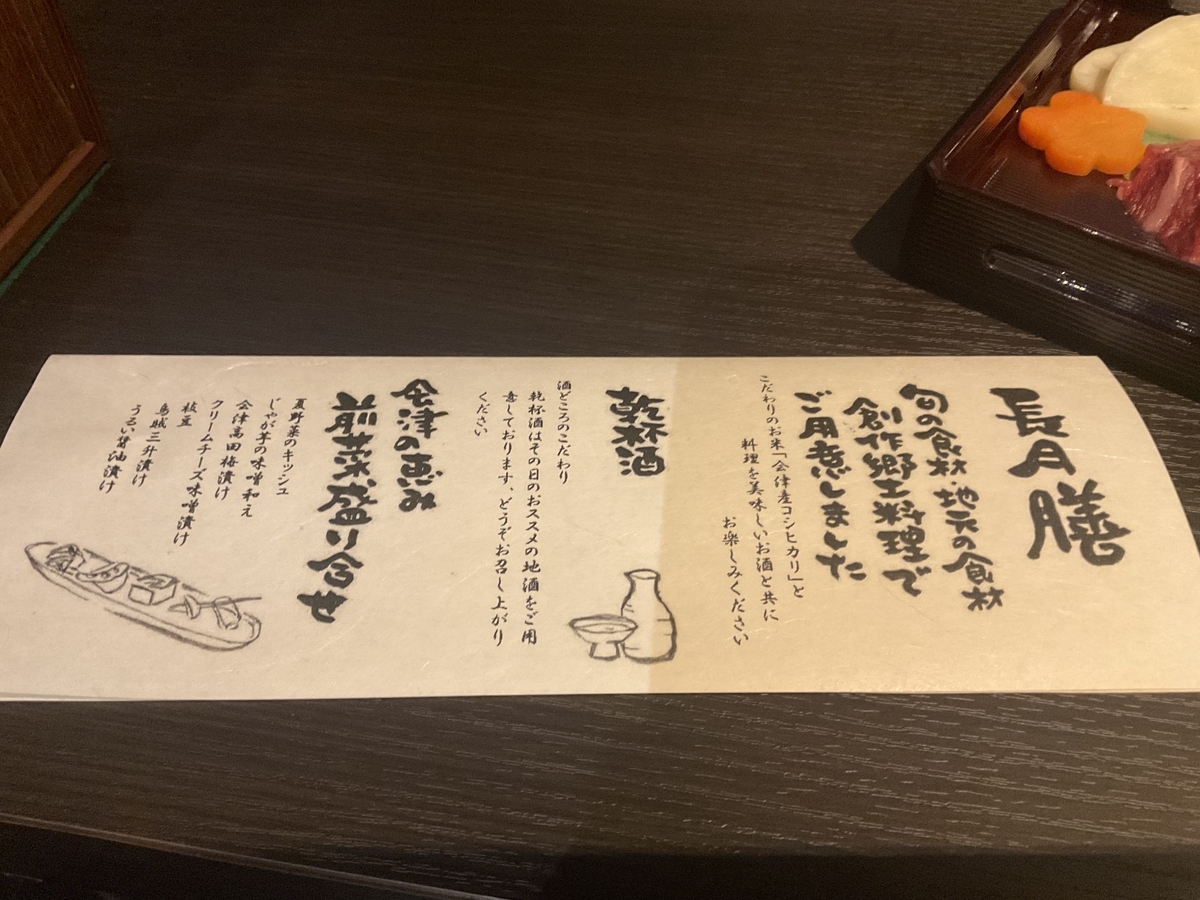 長月膳
旬の食材・地元の食材
創作郷土料理で
ご用意しました
こだわりのお米「会津産コシヒカリ」と
料理を美味しいお酒と共に
お楽しみください
乾杯酒
酒どころのこだわり
乾杯酒はその日のおススメの地酒をご用
意しております、どうぞお召し上がり
ください
会津の恵み
前菜盛り合せ
夏野菜のキッシュ
じゃが芋の味噌和え
会津高田梅漬け
クリームチーズ味噌漬け
枝豆
烏賊三升漬け
うるい醤油漬け